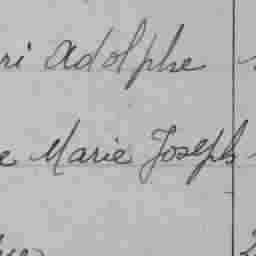 ri Adolphe
e Marie Joseph